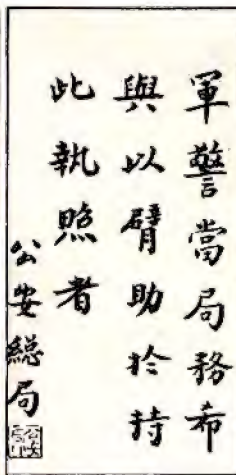 軍警當局務希
與以臂助於持
此執照者
公安總局